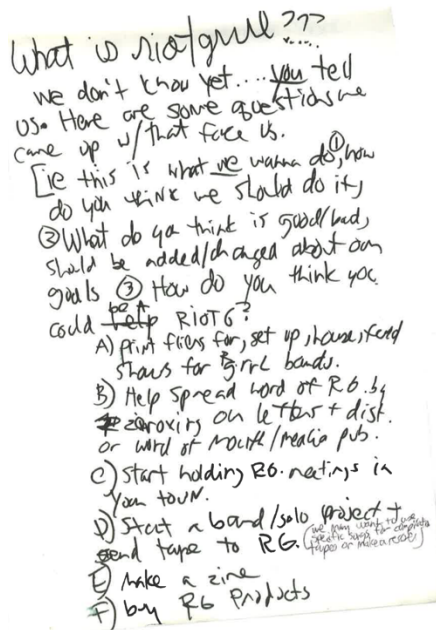 What is riot/grrrl???
we don't know yet.... you tell
us. Here are some questions we
came up w/that face us.
[ie this is what we wanna do, ① how
do you think we should do it,
② What do you think is good/bad,
should be added/changed about our
goals ③ How do you think you
could be a RIOT G?
A) print fliers for, set up, house, feed
shows for grrl bands.
B) Help spread word of RG. by
xeroxing our letters + dist.
or word of mouth/media pub.
C) Start holding RG. meetings in
your town.
D) Start a band/solo project +
send tape to RG. (we may want to use
specific songs for
tapes or make a record)
E) make a zine
F) buy RG Products